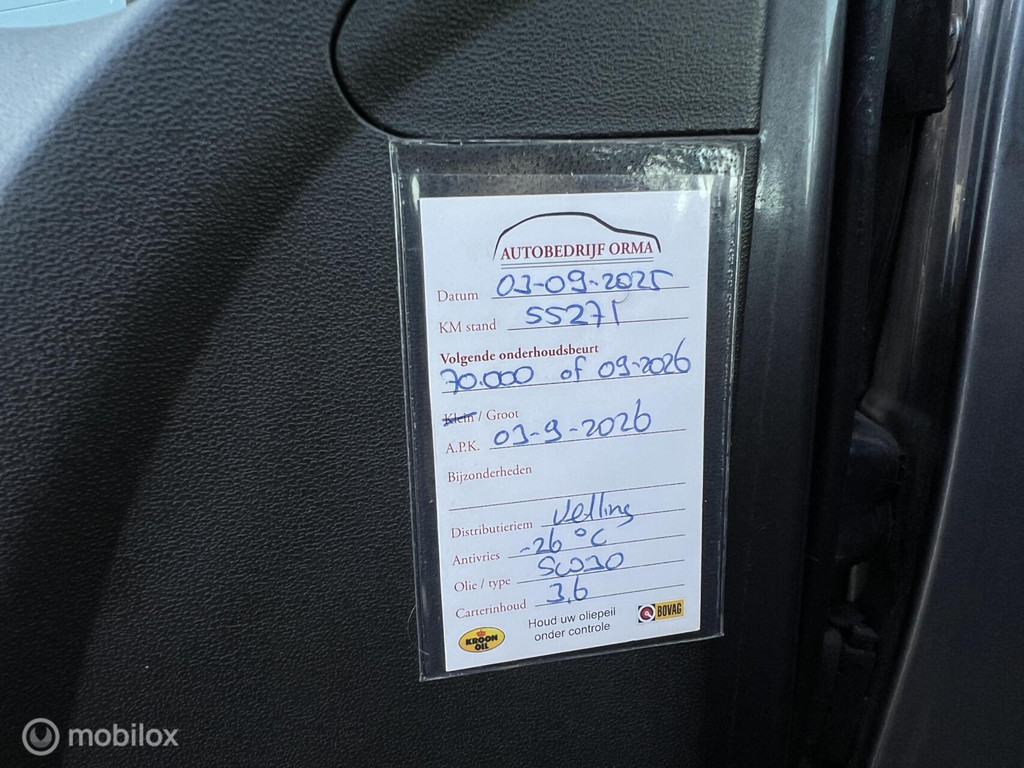 AUTOBEDRIJF ORMA
Datum 03-09-2025
KM stand 55271
Volgende onderhoudsbeurt
70.000 of 09-2026
Klein / Groot
A.P.K. 03-9-2026
Bijzonderheden
Distributieriem
Antivries -26 °C
Olie / type 5W30
Carterinhoud 3,6
Houd uw oliepeil
onder controle
KROON
OIL
BOVAG
mobilox